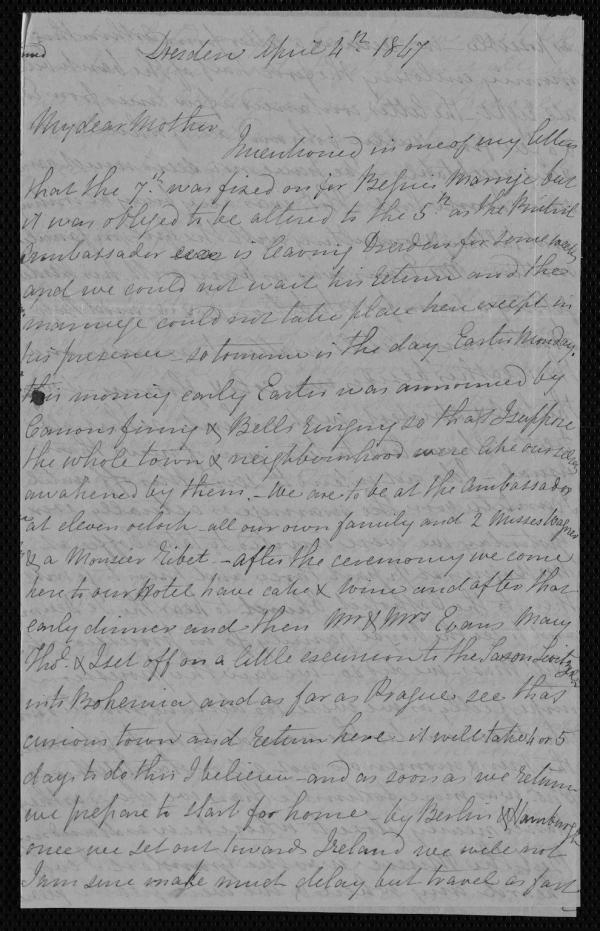 Dresden April 4th 1847
My dear Mother
I mentioned in one of my letters
that the 7th was fixed on for Bessie's Marriage but
it was obliged to be altered to the 5th as the British
Ambassador is leaving Dresden for some weeks
and we could not wait his return and the
marriage could not take place here except in
his presence - so tomorrow is the day - Easter Monday.
this morning early Easter was announced by
Canons firing & Bells ringing so that I suppose
the whole town & neighbourhood were like ourselves
awakened by them. - We are to be at the Ambassador
at eleven oclock - all our own family and 2 Misses Wagner
& a Monsier - after the ceremony we come
here to our Hotel have cake & wine and after that
early dinner and then Mr & Mrs Evans Mary
Thos. & I set off on a little excursion to the Saxon
into Bohemia and as far as Prague see that
curious town and return here it will take 4 or 5
days to do this I believe - and as soon as we return
we prepare to start for home - by Berlin & Hamburgh
once we set out towards Ireland we will not
I am sure make much delay but travel as fast